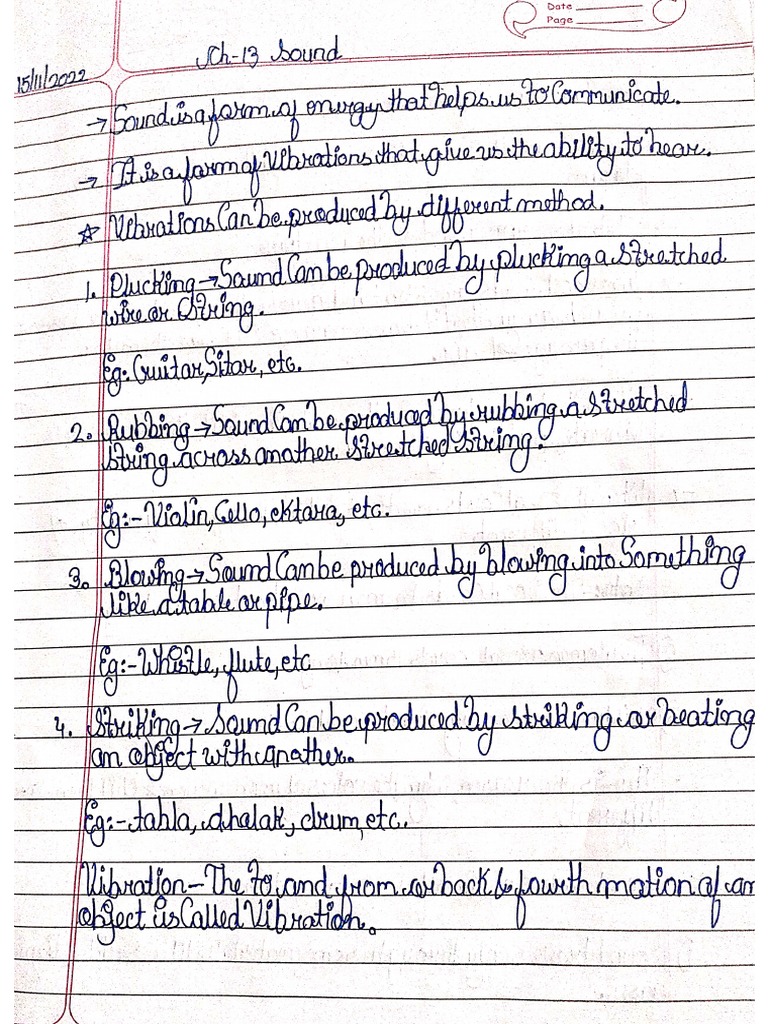 Date
Page
Ch-13 Sound
15/11/2022
→ Sound is a form of energy that helps us to Communicate.
→ It is a form of Vibrations that give us the ability to hear.
☆ Vibrations Can be produced by different method.
1. Plucking → Sound Can be produced by plucking a stretched
wire or string.
Eg:- Guitar, Sitar, etc.
2. Rubbing → Sound Can be produced by rubbing a stretched
string across another stretched string.
Eg:- Violin, Cello, ektara, etc.
3. Blowing → Sound Can be produced by blowing into Something
like a table or pipe.
Eg:- Whistle, flute, etc
4. Striking → Sound Can be produced by striking or beating
an object with another.
Eg:- tabla, dholak, drum, etc.
Vibration - The to and from or back & fourth motion of an
object is Called Vibration.